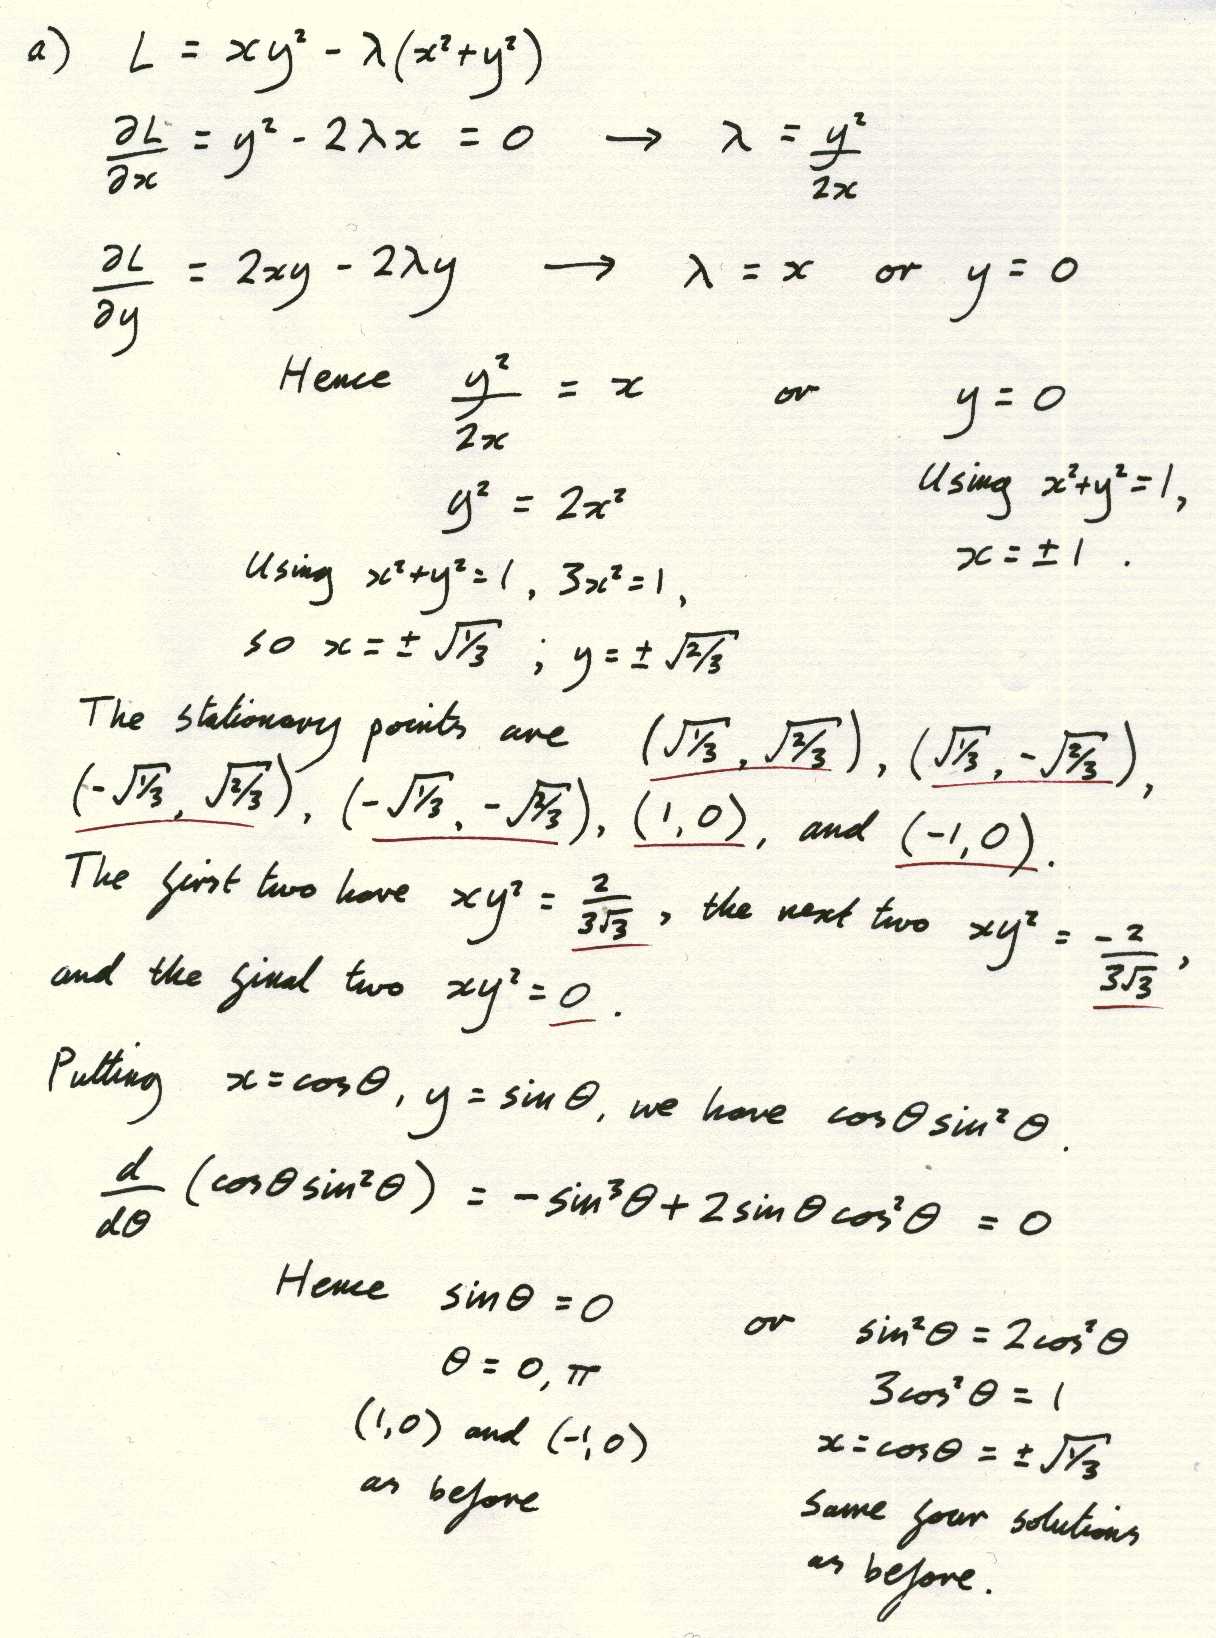 a) L = xy² - λ(x²+y²)
∂L/∂x = y² - 2λx = 0 → λ = y²/2x
∂L/∂y = 2xy - 2λy → λ = x or y = 0
Hence y²/2x = x or y = 0
y² = 2x² Using x²+y²=1,
x = ±1.
Using x²+y²=1, 3x²=1,
so x = ±√1/3 ; y = ±√2/3
The stationary points are (√1/3, √2/3), (√1/3, -√2/3),
(-√1/3, √2/3), (-√1/3, -√2/3), (1,0), and (-1,0).
The first two have xy² = 2/3√3, the next two xy² = -2/3√3,
and the final two xy² = 0.
Putting x = cosθ, y = sinθ, we have cosθ sin²θ.
d/dθ (cosθ sin²θ) = -sin³θ + 2 sinθ cos²θ = 0
Hence sinθ = 0 or sin²θ = 2cos²θ
θ = 0, π 3cos²θ = 1
(1,0) and (-1,0) x = cosθ = ±√1/3
as before same four solutions
as before.